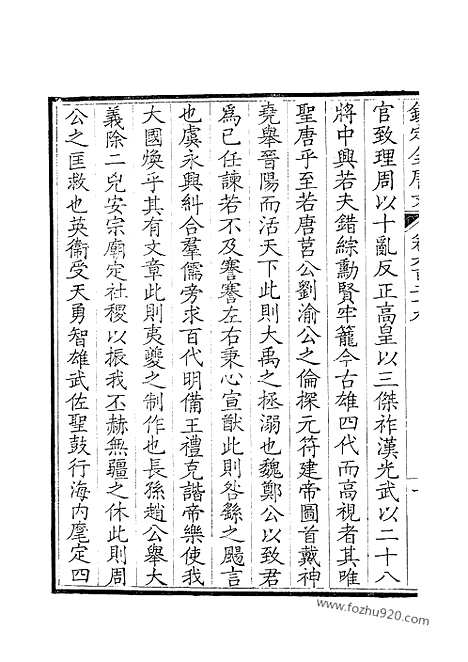 欽定全唐文 卷六百二十九 一
官致理周以十亂反正高皇以三傑祚漢光武以二十八
將中興若夫錯綜勳賢牢籠今古雄四代而高視者其唯
聖唐乎至若唐莒公劉渝公之倫探元符建帝圖首戴神
堯舉晉陽而活天下此則大禹之拯溺也魏鄭公以致君
爲已任諫若不及謇謇左右秉心宣猷此則咎繇之颺言
也虞永興糾合羣儒旁求百代明備王禮克諧帝樂使我
大國煥乎其有文章此則夷夔之制作也長孫趙公舉大
義除二兇安宗廟定社稷以振我丕赫無疆之休此則周
公之匡救也英衞受天勇智雄武佐聖鼓行海內麾定四
www.fozhu920.com